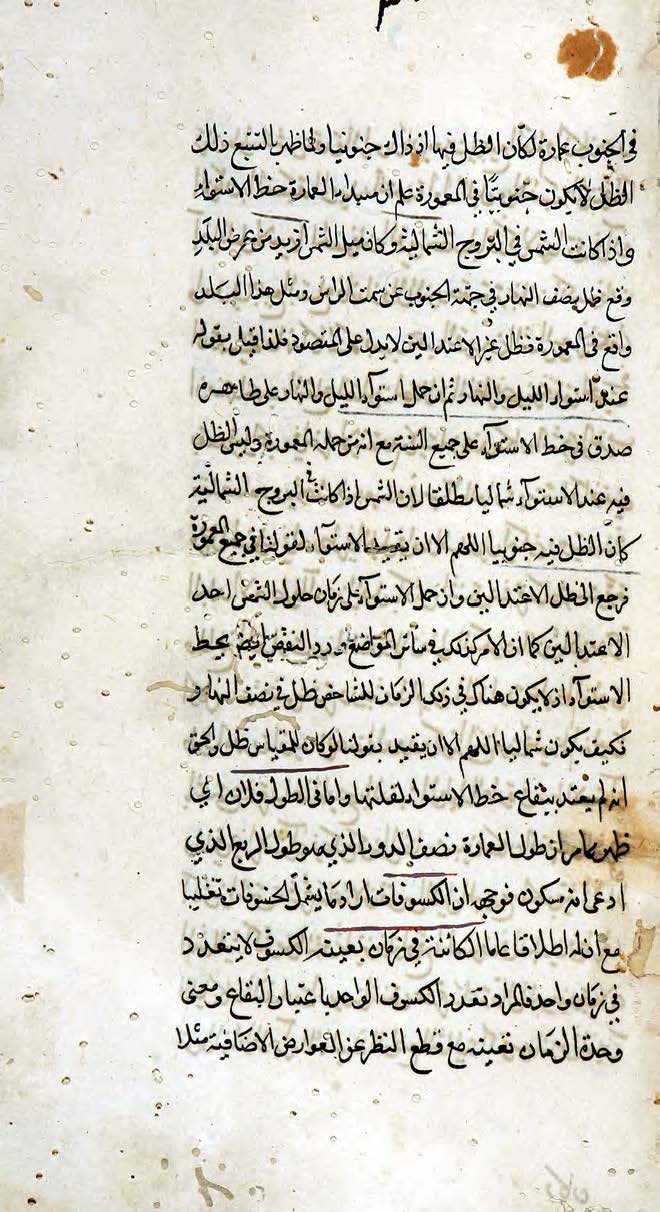 في الجنوب عمارة لكان الظل فيها اذ ذاك جنوبيا ولما ظهر بالتتبع ذلك
الظل لا يكون جنوبيا في المعمورة علم ان مبداء العمارة خط الاستواء
واذا كانت الشمس في البروج الشمالية وكان ميل الشمس ازيد من عرض البلد
وقع ظل نصف النهار في جهة الجنوب عن سمت الراس ومثل هذا البلد
واقع في المعمورة فظل غير الاعتدالين لا يدل على المقصود فلذا قيل بقوله
عند استواء الليل والنهار ثم ان حمل استواء الليل والنهار على ظاهره
صدق في خط الاستواء على جميع السنة مع انه من جملة المعمورة وليس الظل
فيه عند الاستواء شماليا مطلقا لان الشمس اذا كانت في البروج الشمالية
كان الظل فيه جنوبيا اللهم الا ان يقيد الاستواء بقولنا في جميع المعمورة
فرجع الى ظل الاعتدالين وان حمل الاستواء على زمان حلول الشمس احد
الاعتدالين كما ان الامر كذلك في سائر المواضع ورد النقض ايضا بخط
الاستواء اذ لا يكون هناك في ذلك الزمان للشاخص ظل في نصف النهار
فكيف يكون شماليا اللهم الا ان يقيد بقولنا لو كان للمقياس ظل والحق
انه لم يعتد ببقاع خط الاستواء لقلتها واما في الطول فلان اي
ظهر بما مر ان طول العمارة نصف الدور الذي هو طول الربع الذي
ادعى انه مسكون فوجهه ان الكسوفات اراد ما يشمل الخسوفات تغليبا
مع ان له اطلاقا عاما الكائنة في زمان بعينه الكسوف لا يتعدد
في زمان واحد فالمراد تعدد الكسوف الواحد باعتبار البقاع ومعنى
وحدة الزمان تعينه مع قطع النظر عن العوارض الاضافية مثلا